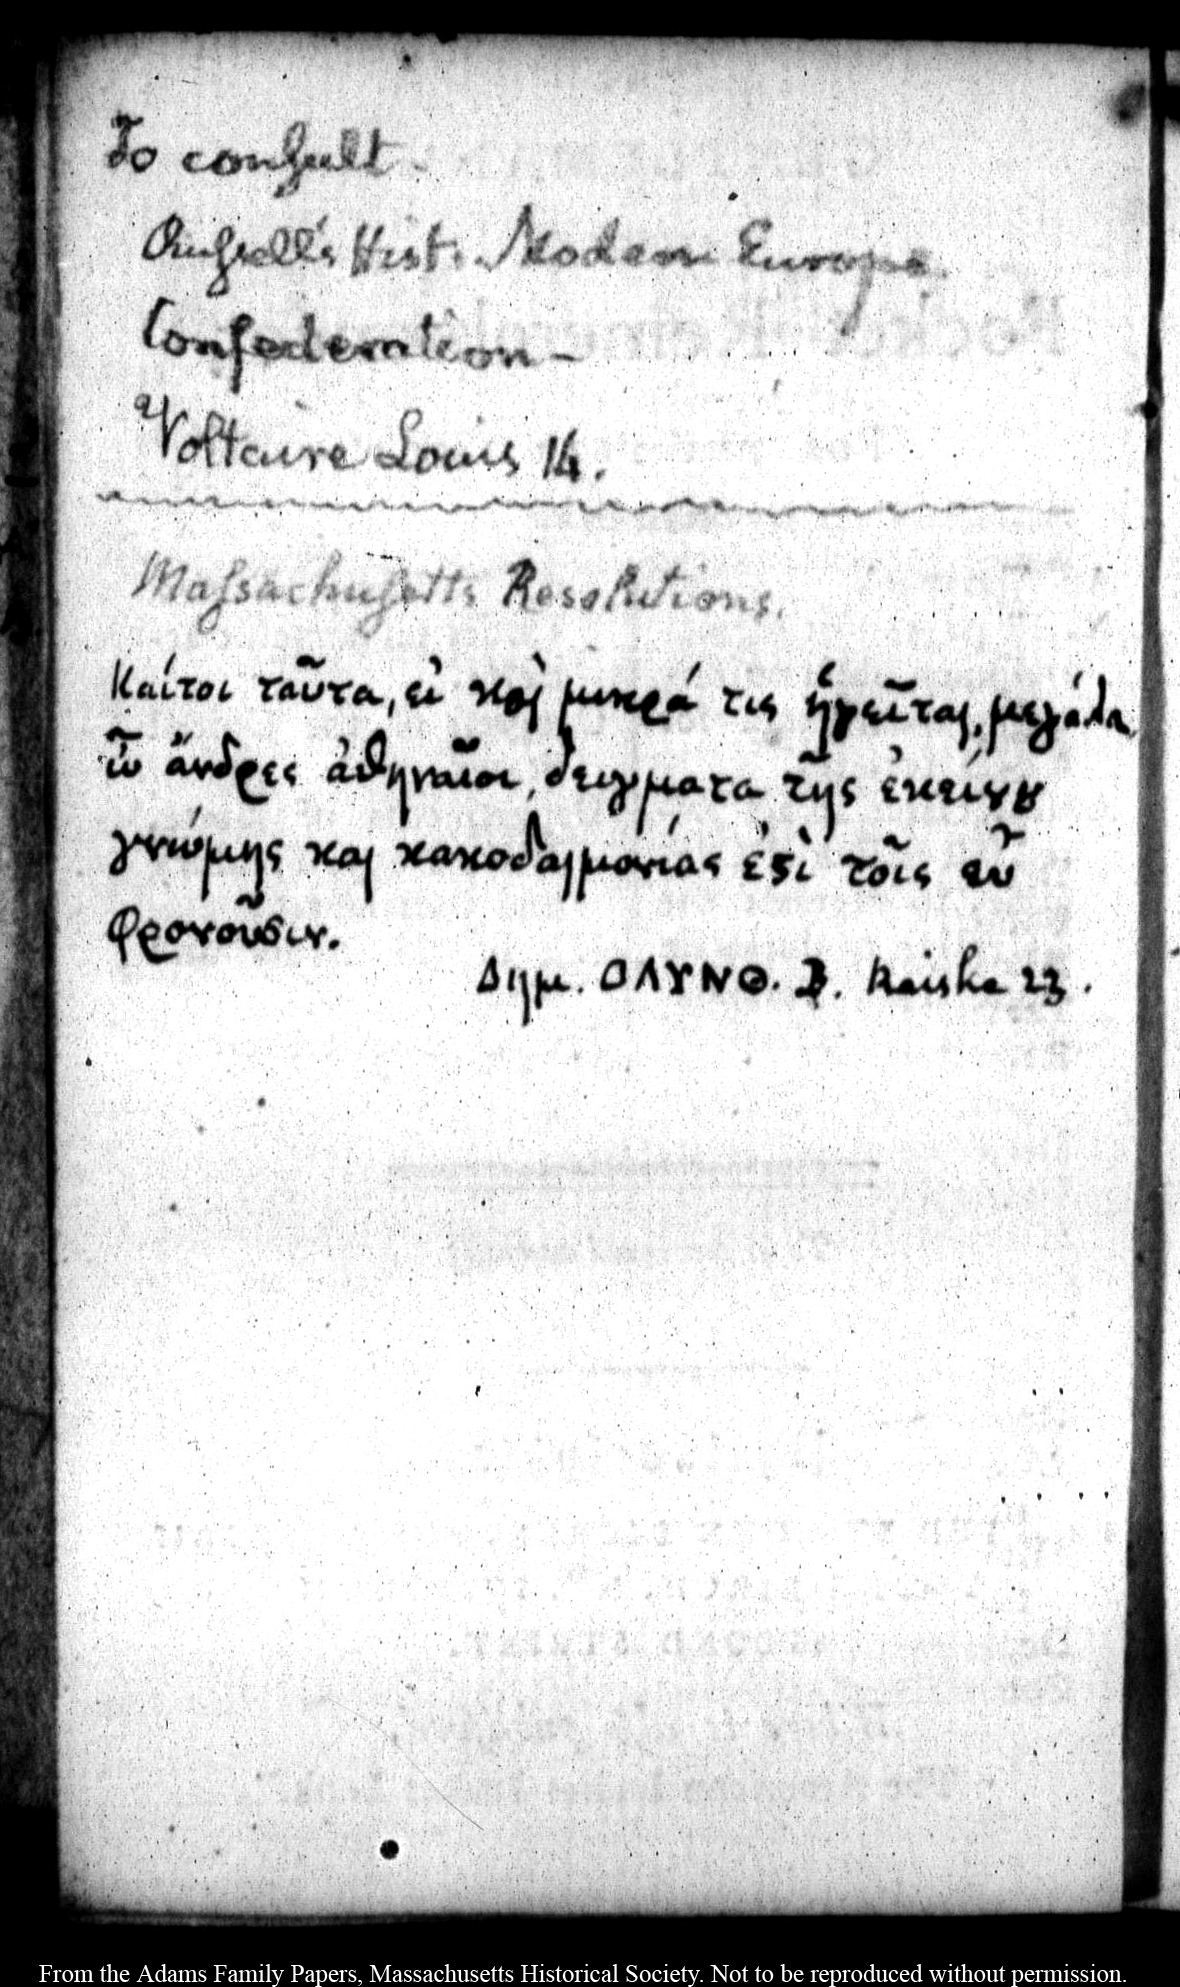 To consult.
Russell's Hist. Modern Europe
Confederation —
Voltaire Louis 14.
Massachusetts Resolutions.
Καίτοι ταῦτα, εἰ καὶ μικρά τις ἡγεῖται, μεγάλα,
ὦ ἄνδρες ἀθηναῖοι, δειγματα τῆς ἐκείνȣ
γνώμης και κακοδαιμονίας ἐϛὶ τοῖς εὖ
φρονοῦσιν.
Δημ. ΟΛΥΝΘ. Β. Reiske 23.
From the Adams Family Papers, Massachusetts Historical Society. Not to be reproduced without permission.